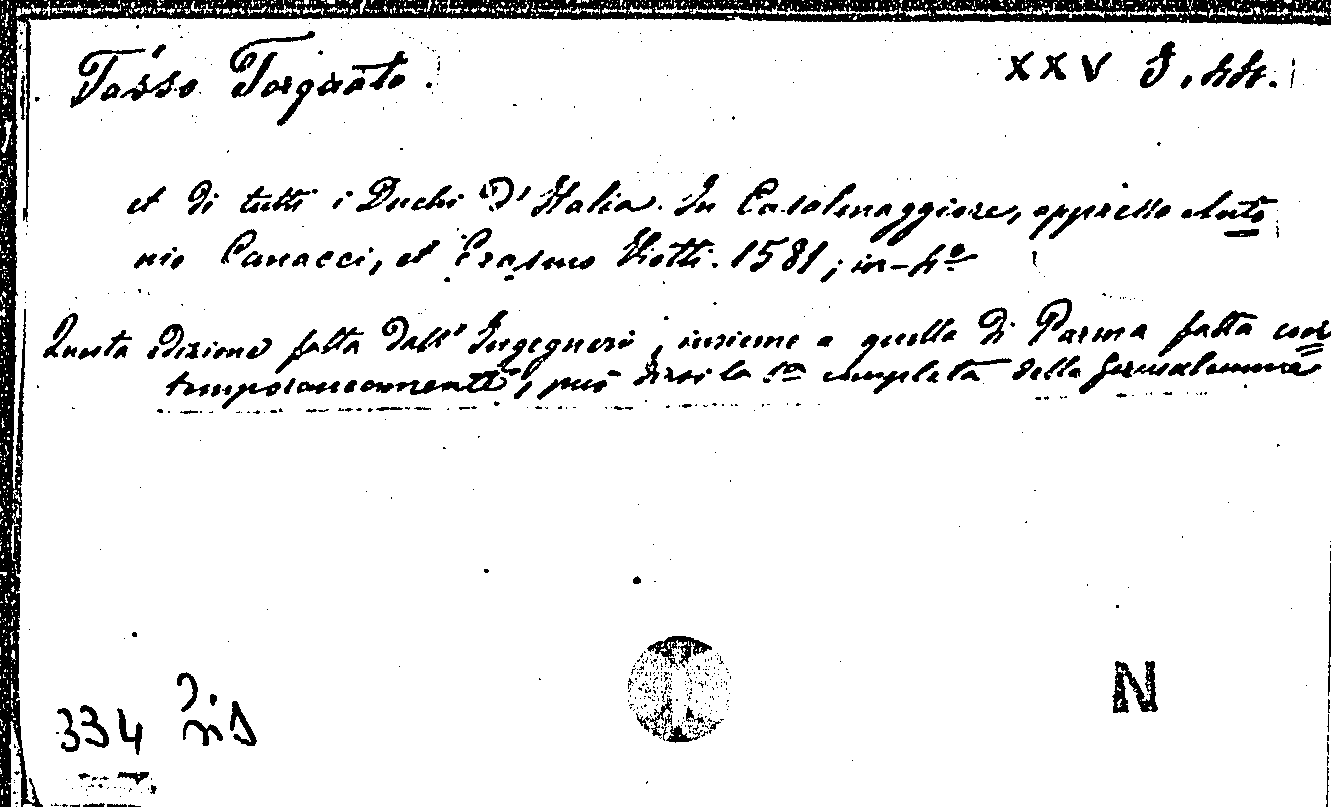 Tasso Torquato. XXV J, 44.
et di tutti i Duchi D'Italia. In Casalmaggiore, appresso Anto
nio Canacci, et Erasmo Viotti. 1581; in-4º
Questa edizione fatta dall'Ingegneri, insieme a quella di Parma fatta con
temporaneamente, può dirsi la 1ª completa della Gerusalemme
N
334